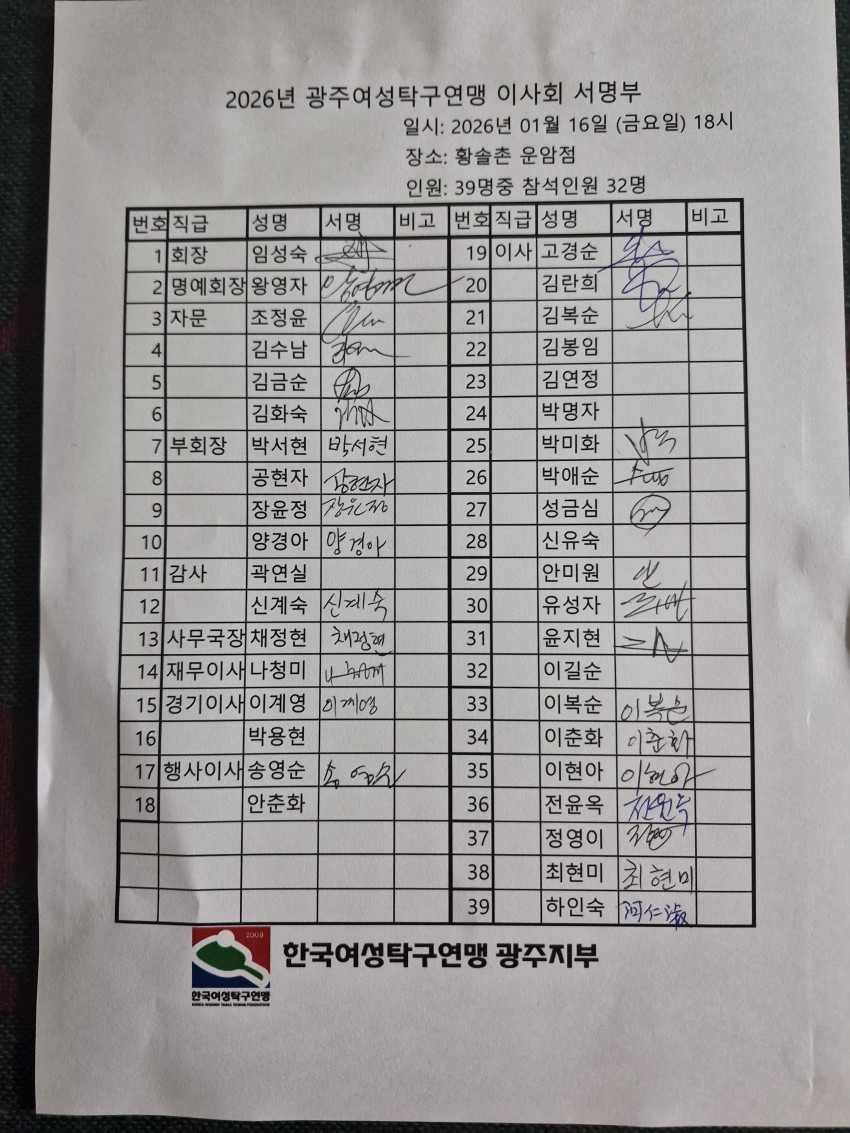 2026년 광주여성탁구연맹 이사회 서명부
일시: 2026년 01월 16일 (금요일) 18시
장소: 황솔촌 운암점
인원: 39명중 참석인원 32명
번호 직급 성명 서명 비고 번호 직급 성명 서명 비고
1 회장 임성숙 19 이사 고경순
2 명예회장 왕영자 20 김란희
3 자문 조정윤 21 김복순
4 김수남 22 김봉임
5 김금순 23 김연정
6 김화숙 24 박명자
7 부회장 박서현 박서현 25 박미화
8 공현자 공현자 26 박애순
9 장윤정 장윤정 27 성금심
10 양경아 양경아 28 신유숙
11 감사 곽연실 29 안미원
12 신계숙 신계숙 30 유성자
13 사무국장 채정현 채정현 31 윤지현
14 재무이사 나청미 32 이길순
15 경기이사 이계영 이계영 33 이복순 이복순
16 박용현 34 이춘화 이춘화
17 행사이사 송영순 송영순 35 이현아 이현아
18 안춘화 36 전윤옥
37 정영이
38 최현미 최현미
39 하인숙
2009
한국여성탁구연맹 광주지부
한국여성탁구연맹